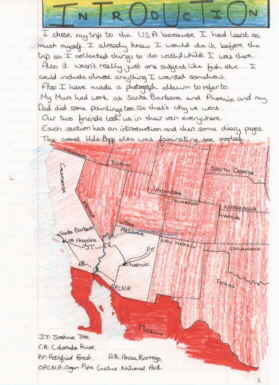 INTRODUCTION
I chose my trip to the U.S.A because I had learnt so
much myself. I already knew I would do it before the
trip so I collected things to do with it while I was there.
Also it wasn't really just one subject like fish etc. I
could include almost anything I wanted somehow.
Also I have made a photograph album to refer to.
My Mum had work at Santa Barbara and Phoenix and my
Dad did some painting too so that's why we went.
Our two friends took us in their van everywhere.
Each section has an introduction and then some diary pages.
The
California
South Dakota
Nebraska
Colorado
Texas
Santa Barbara
Los Angeles
Arizona
New Mexico
Phoenix
J.T.
C.R.
P.F.
A.B.
OPCNM
Mexico
J.T. Joshua Tree
C.R. Colorado River
P.F. Petrified Forest. A.B. Anza Borrego
OPCNM-Organ Pipe Cactus National